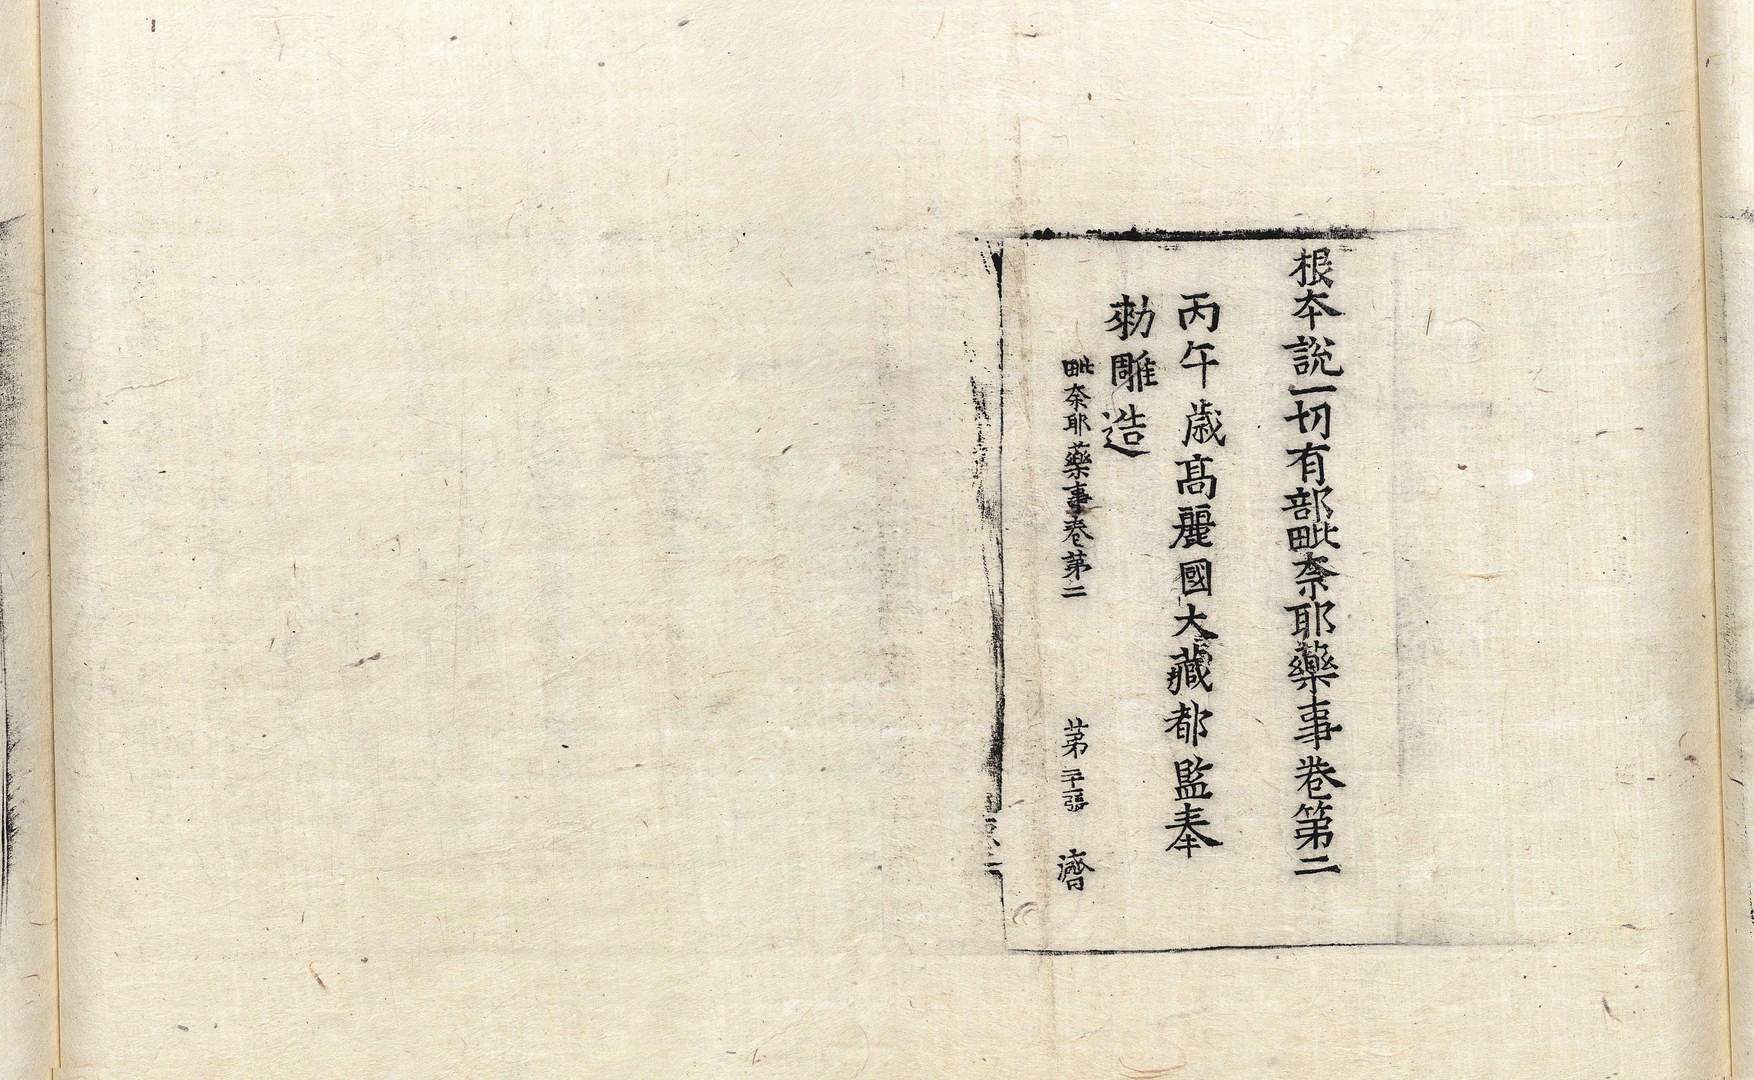 根本說一切有部毗奈耶藥事卷第二
丙午歲高麗國大藏都監奉
勑雕造
毗奈耶藥事卷第二 第二十二張 濟